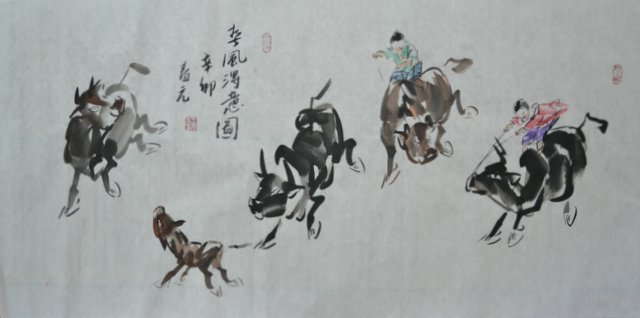 春風得意图
辛卯
春元